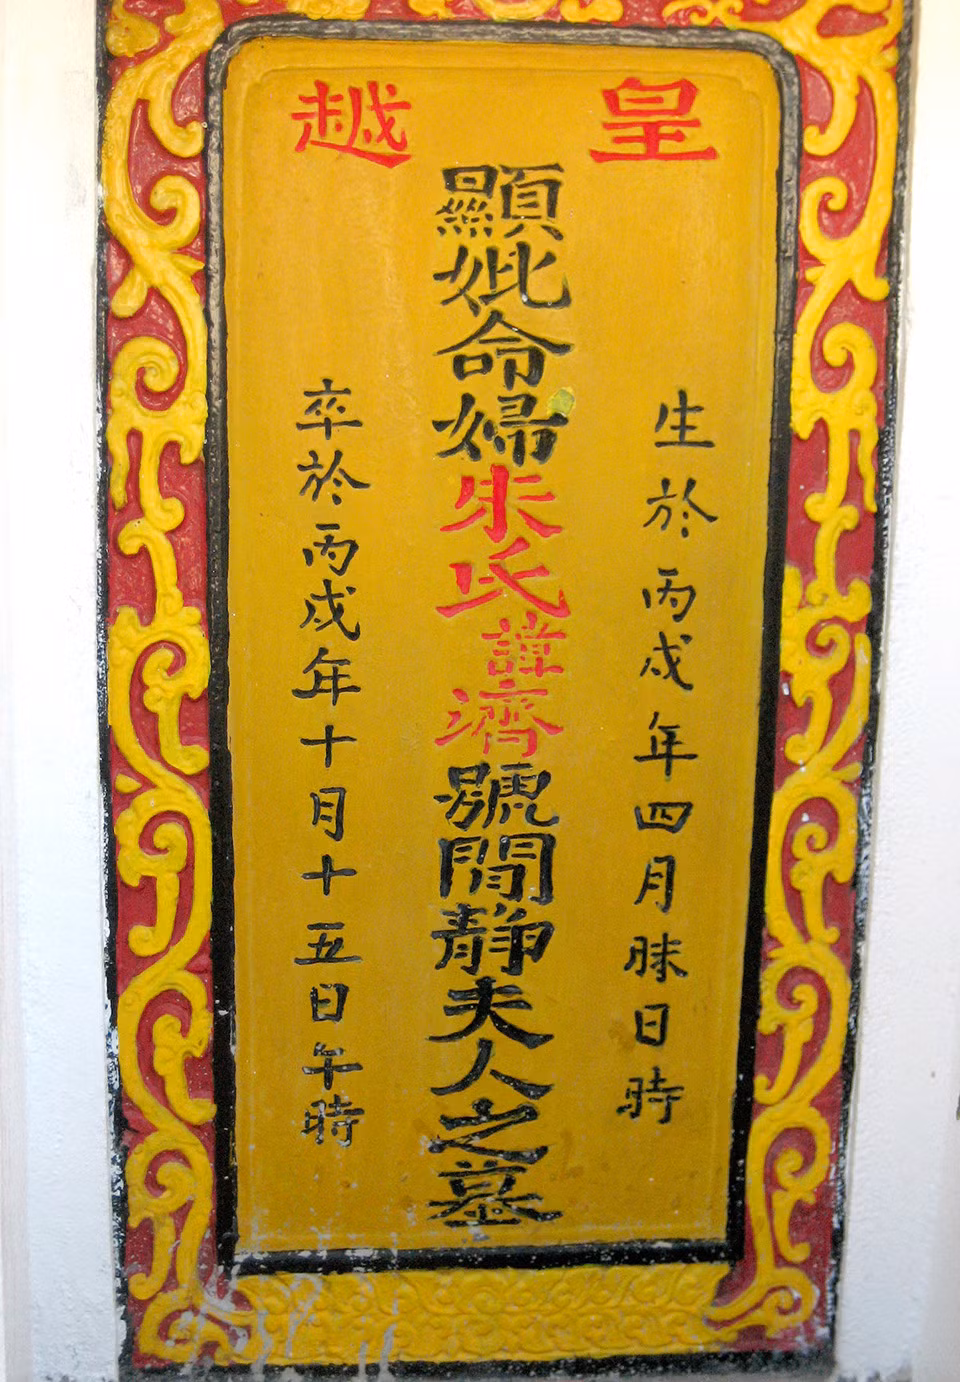 皇越
生於丙戌年四月昧日時
顯妣命婦朱氏諱濟號閒靜夫人之墓
卒於丙戌年十月十五日午時